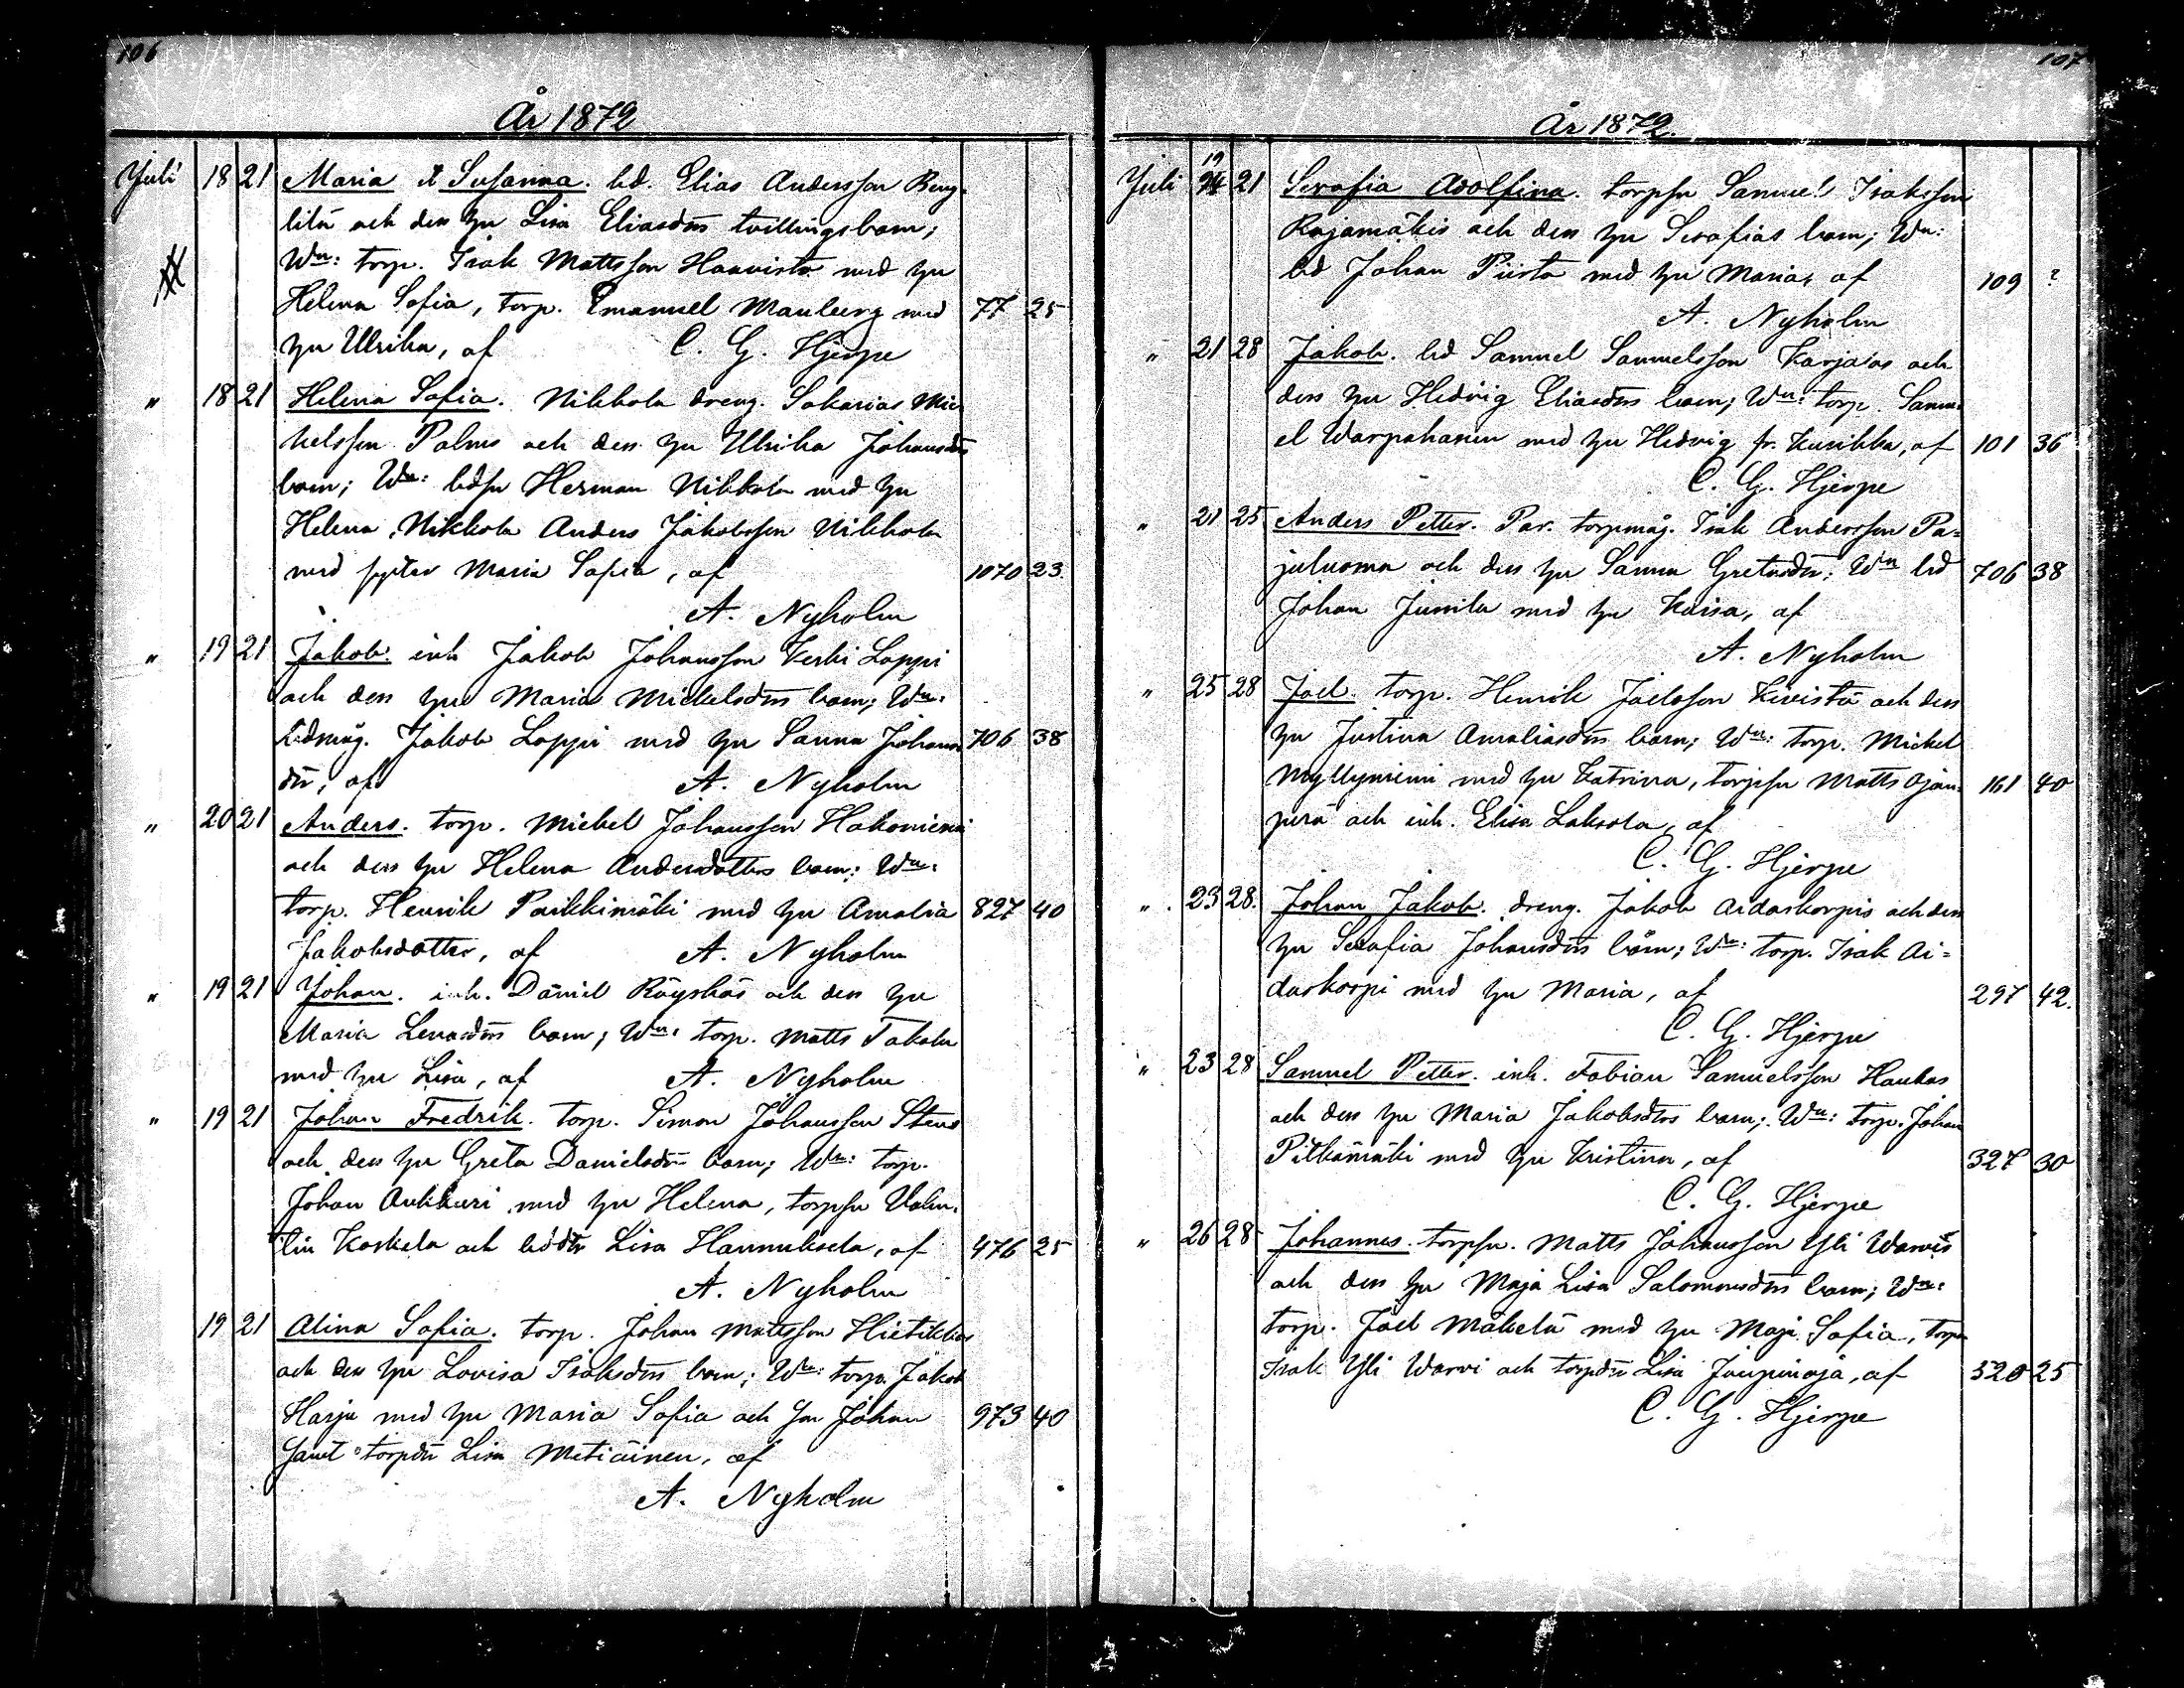 106
År 1872
Juli 18 21 Maria & Susanna. bd. Elias Andersson Beng-
litu och dess hu Lisa Eliasdrs tvillingsbarn;
Wn: torp. Isak Mattsson Haavisto med hu
Helena Sofia, torp. Emanuel Mauberg med 77 25
hu Ulrika, af C. G. Hjerpe
" 18 21 Helena Sofia. Nikkola dreng. Sakarias Mic-
kelsson Palms och dess hu Ulrika Johansdrs
barn; Wn: bdsn Herman Nikkola med hu
Helena, Nikkola Anders Jakobsson Nikkola
med syster Maria Sofia, af 1070 23.
A. Nyholm
" 19 21 Jakob. inh Jakob Johansson Keski Loppi
och dess hu Maria Mickelsdrs barn; Wn:
bdmåg. Jakob Loppi med hu Sanna Johans 706 38
dr, af A. Nyholm
" 20 21 Anders. torp. Mickel Johansson Hakoniemi
och dess hu Helena Andersdotters barn; Wn:
torp. Henrik Paikkimäki med hu Amalia 827 40
Jakobsdotter, af A. Nyholm
" 19 21 Johan. inh. Daniel Röyskös och dess hu
Maria Lenasdrs barn; Wn: torp. Matts Takala
med hu Lisa, af A. Nyholm
" 19 21 Johan Fredrik. torp. Simon Johansson Stens
och dess hu Greta Danielsdrs barn; Wn: torp.
Johan Ankkuri med hu Helena, torpsn Valen-
tin Koskela och bddtr Lisa Hannuksela, af 476 25
A. Nyholm
19 21 Alina Sofia. torp. Johan Mattsson Hietikkos
och dess hu Lovisa Isaksdrs barn; Wn: torp. Jakob
Harju med hu Maria Sofia och sn Johan 973 40
samt torpdr Lisa Metiäinen, af
A. Nyholm
107
År 1872.
19
Juli 21 Serafia Adolfina. torpsn Samuel Isaksson
Rajamäkis och dess hu Serafias barn; Wn:
bd Johan Piirto med hu Maria, af 109 ?
A. Nyholm
" 21 28 Jakob. bd Samuel Samuelsson Karjaas och
dess hu Hedvig Eliasdrs barn; Wn: torp. Samu-
el Warpahanen med hu Hedvig fr. Kurikka, af 101 36
C. G. Hjerpe
" 21 25 Anders Petter. Par. torpmåg. Isak Andersson Pa=
juluoma och dess hu Sanna Gretasdr; Wn bd 706 38
Johan Junila med hu Kaisa, af
A. Nyholm
" 25 28 Joel. torp. Henrik Joelsson Kivistö och dess
hu Justina Amaliasdrs barn; Wn: torp. Mickel
Myllyniemi med hu Katrina, torpsn Matts Ojan- 161 40
perä och inh. Elisa Laksola, af
C. G. Hjerpe
" 23 28. Johan Jakob. dreng. Jakob Aidaskorpis och dess
hu Serafia Johansdrs barn; Wn: torp. Isak Ai=
daskorpi med hu Maria, af 297 42.
C. G. Hjerpe
" 23 28 Samuel Petter. inh. Fabian Samuelsson Haukas
och dess hu Maria Jakobsdrs barn; Wn: torp. Johan
Pitkämäki med hu Kristina, af 327 30
C. G. Hjerpe
" 26 28 Johannes. torpsn. Matts Johansson Yli Warvis
och dess hu Maja Lisa Salomonsdrs barn; Wn:
torp. Joel Mäkelä med hu Maja Sofia, torpsn
Isak Yli Warvi och torpdr Lisa Jaupinoja, af 520 25
C. G. Hjerpe